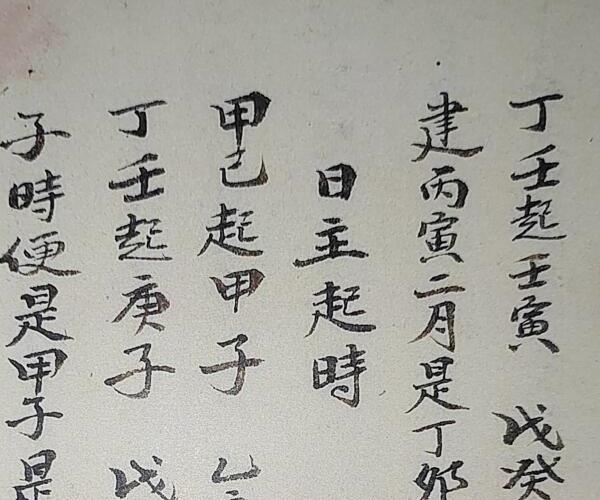 丁壬起壬寅 戊癸
建丙寅二月是丁卯
日主起時
甲己起甲子 乙
丁壬起庚子 戊
子時便是甲子是